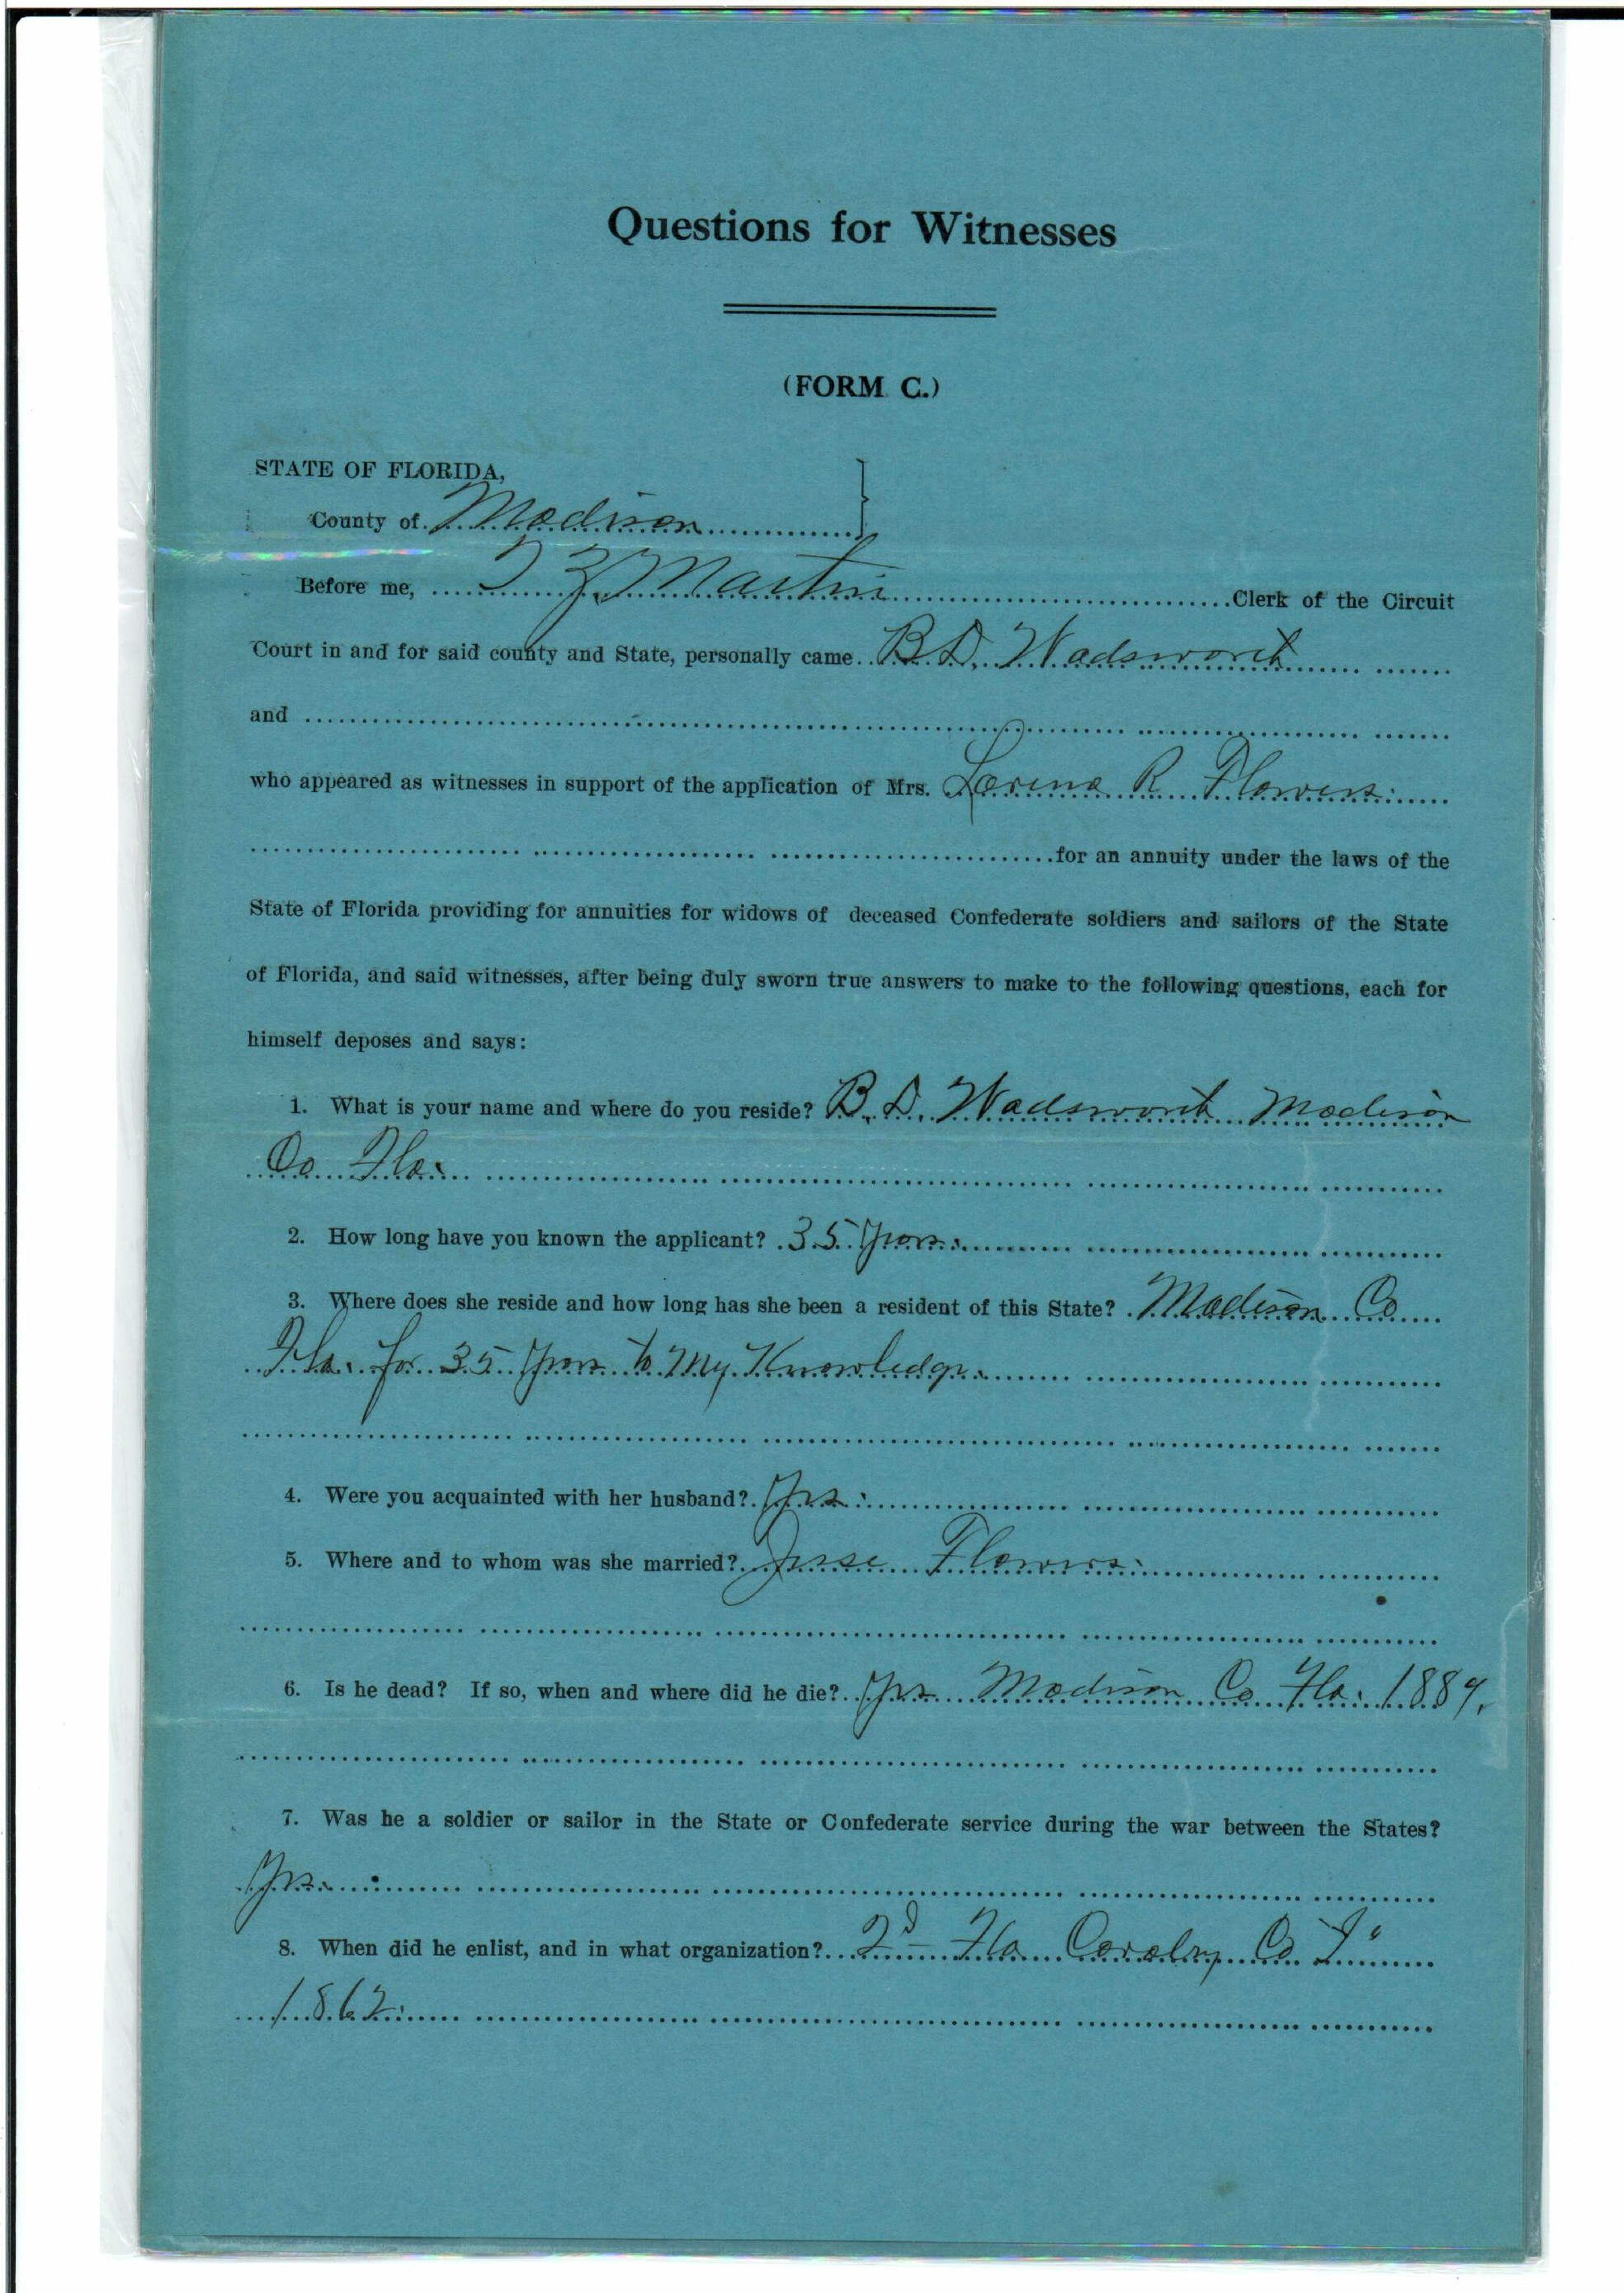 Questions for Witnesses
(FORM C.)
STATE OF FLORIDA,
County of Madison
Before me, T Z Martin Clerk of the Circuit
Court in and for said county and State, personally came B. D. Wadsworth
and
who appeared as witnesses in support of the application of Mrs. Lorena R Flowers
for an annuity under the laws of the
State of Florida providing for annuities for widows of deceased Confederate soldiers and sailors of the State
of Florida, and said witnesses, after being duly sworn true answers to make to the following questions, each for
himself deposes and says:
1. What is your name and where do you reside? B. D. Wadsworth Madison
Co Fla.
2. How long have you known the applicant? 35 Years.
3. Where does she reside and how long has she been a resident of this State? Madison Co
Fla. for 35 Years to My Knowledge.
4. Were you acquainted with her husband? Yes.
5. Where and to whom was she married? Jesse Flowers.
6. Is he dead? If so, when and where did he die? Yes Madison Co Fla. 1889.
7. Was he a soldier or sailor in the State or Confederate service during the war between the States?
Yes.
8. When did he enlist, and in what organization? 2d Fla Cavalry Co
1862.